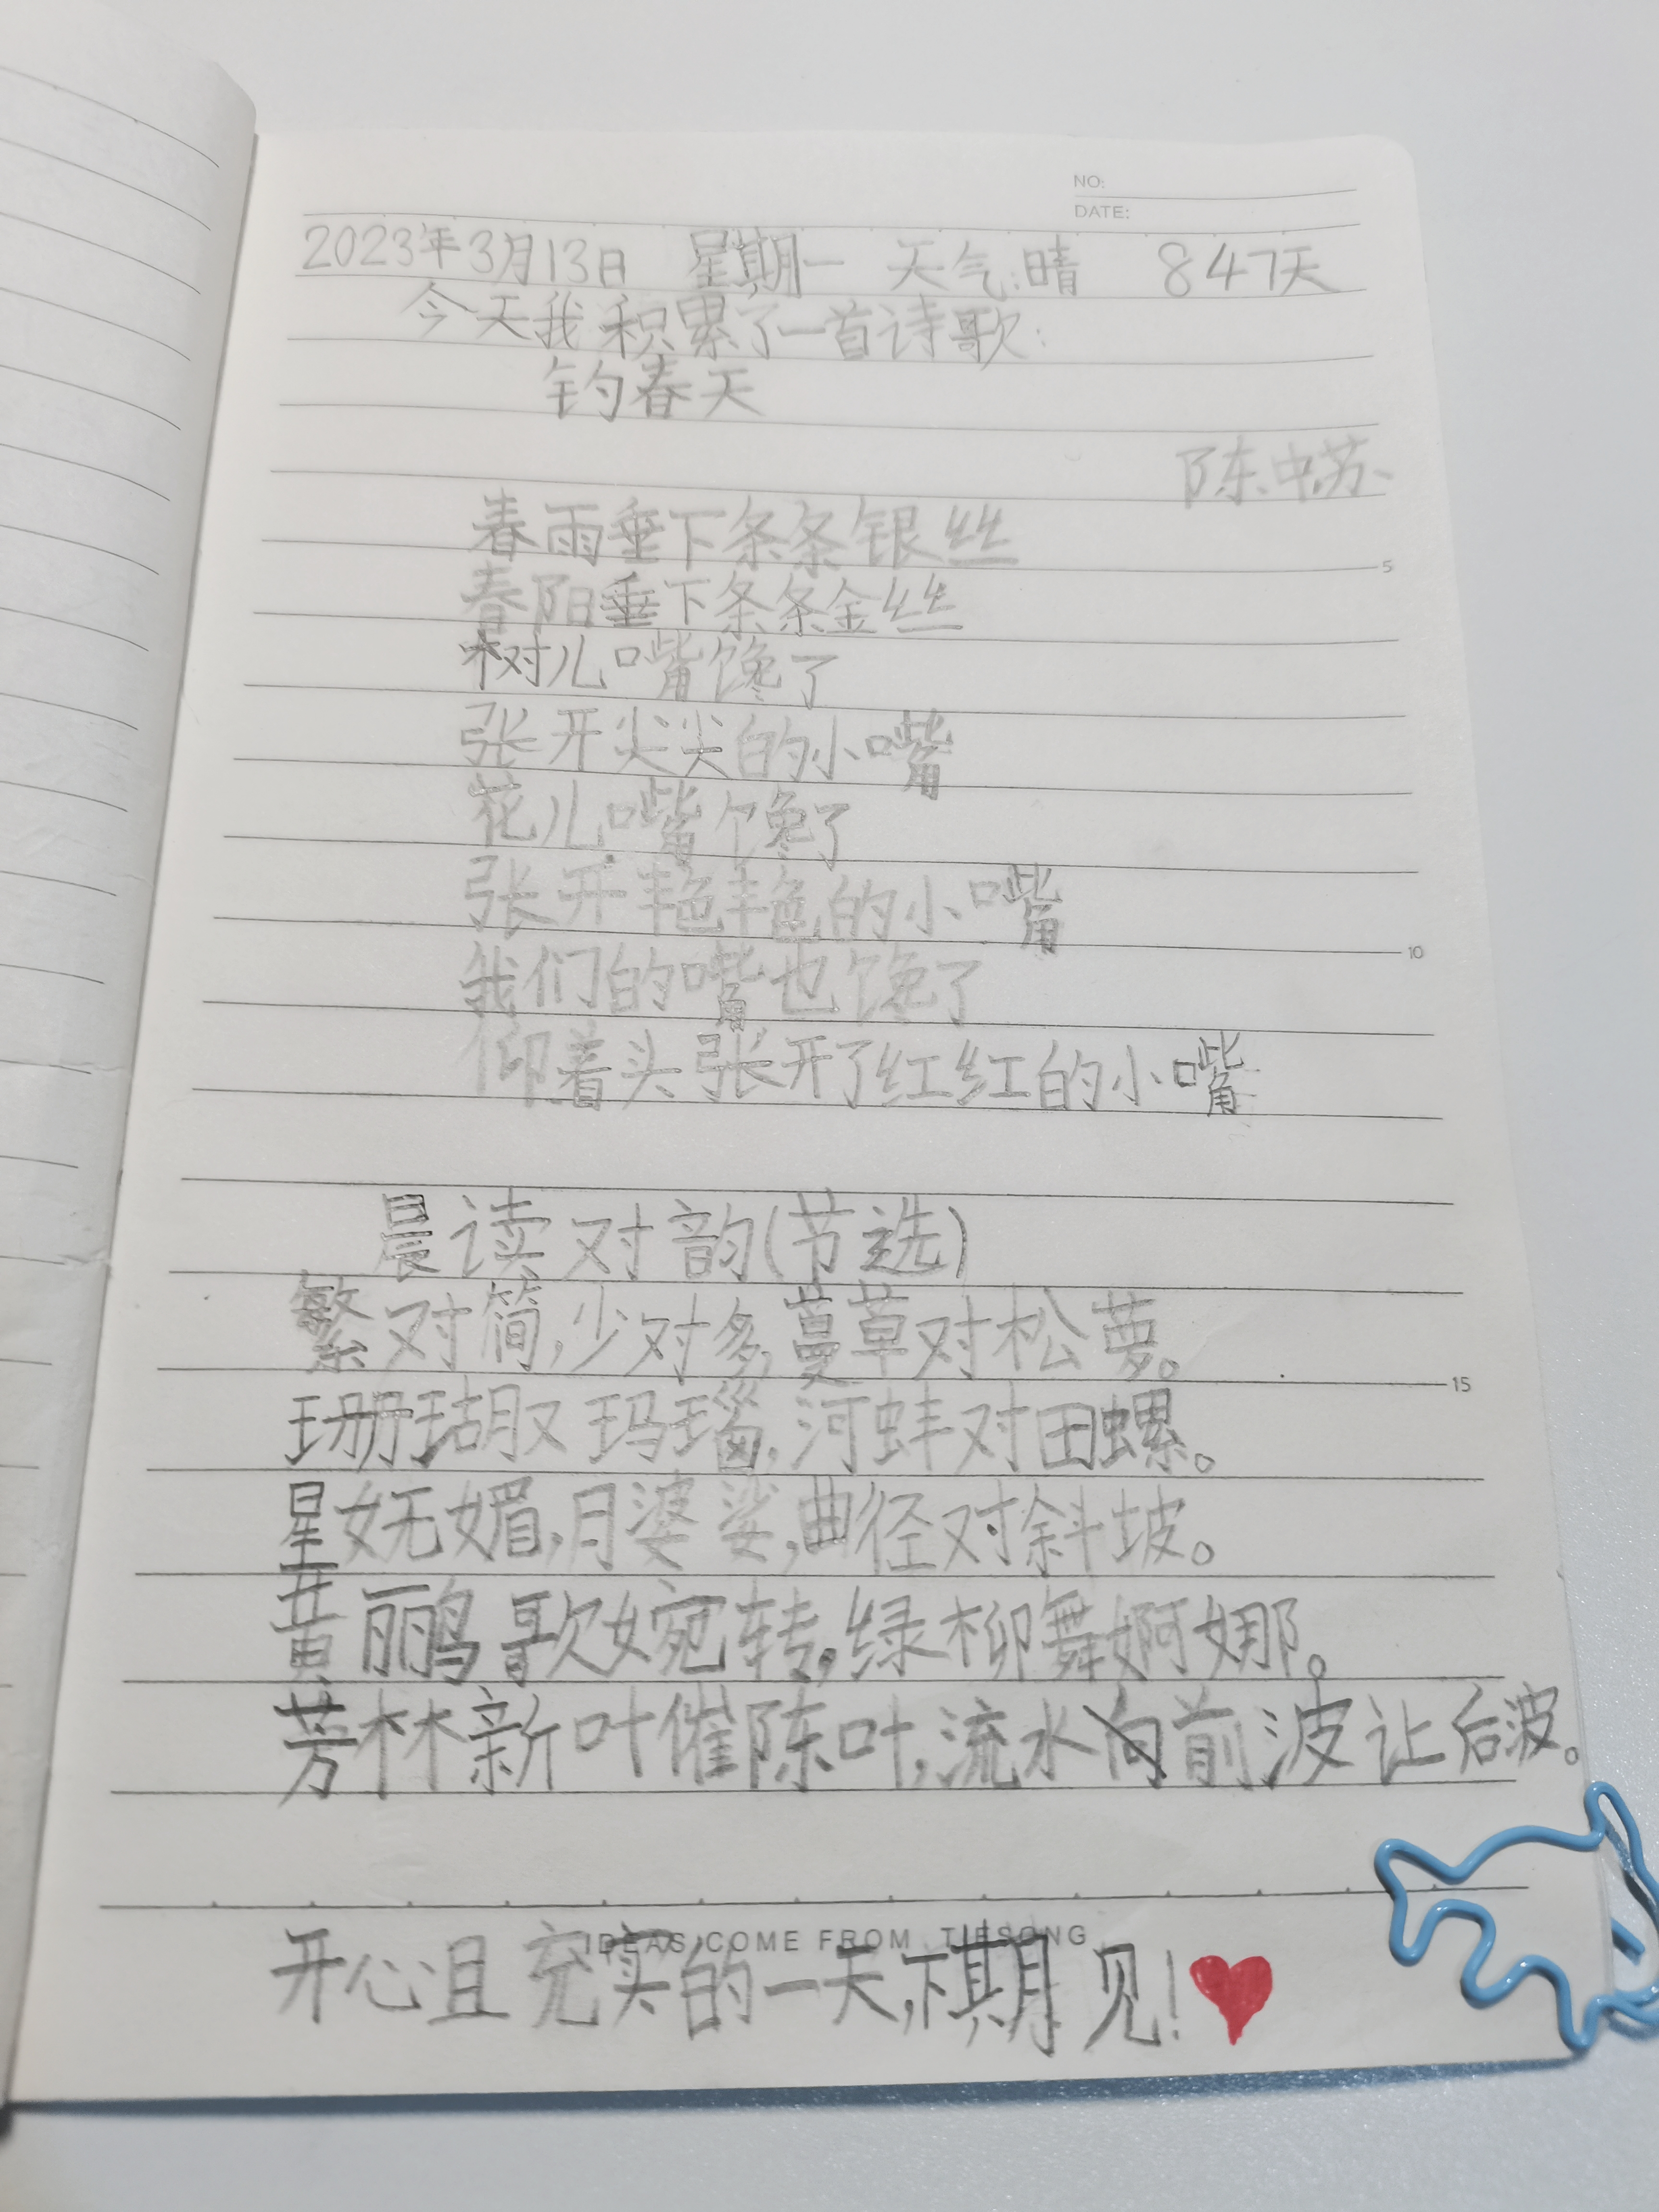 NO:
DATE:
2023年3月13日 星期一 天气:晴 847天
今天我积累了一首诗歌:
钓春天
陈中苏
春雨垂下条条银丝
5
春阳垂下条条金丝
树儿嘴馋了
张开尖尖的小嘴
花儿嘴馋了
张开艳艳的小嘴
10
我们的嘴也馋了
仰着头张开了红红的小嘴
晨读对韵(节选)
繁对简,少对多,蔓草对松萝。
15
珊瑚双玛瑙,河蚌对田螺。
星妩媚,月婆娑,曲径对斜坡。
黄鹂歌婉转,绿柳舞婀娜。
芳林新叶催陈叶,流水前波让后波。
IDEAS COME FROM TIESONG
开心且充实的一天,下期见!